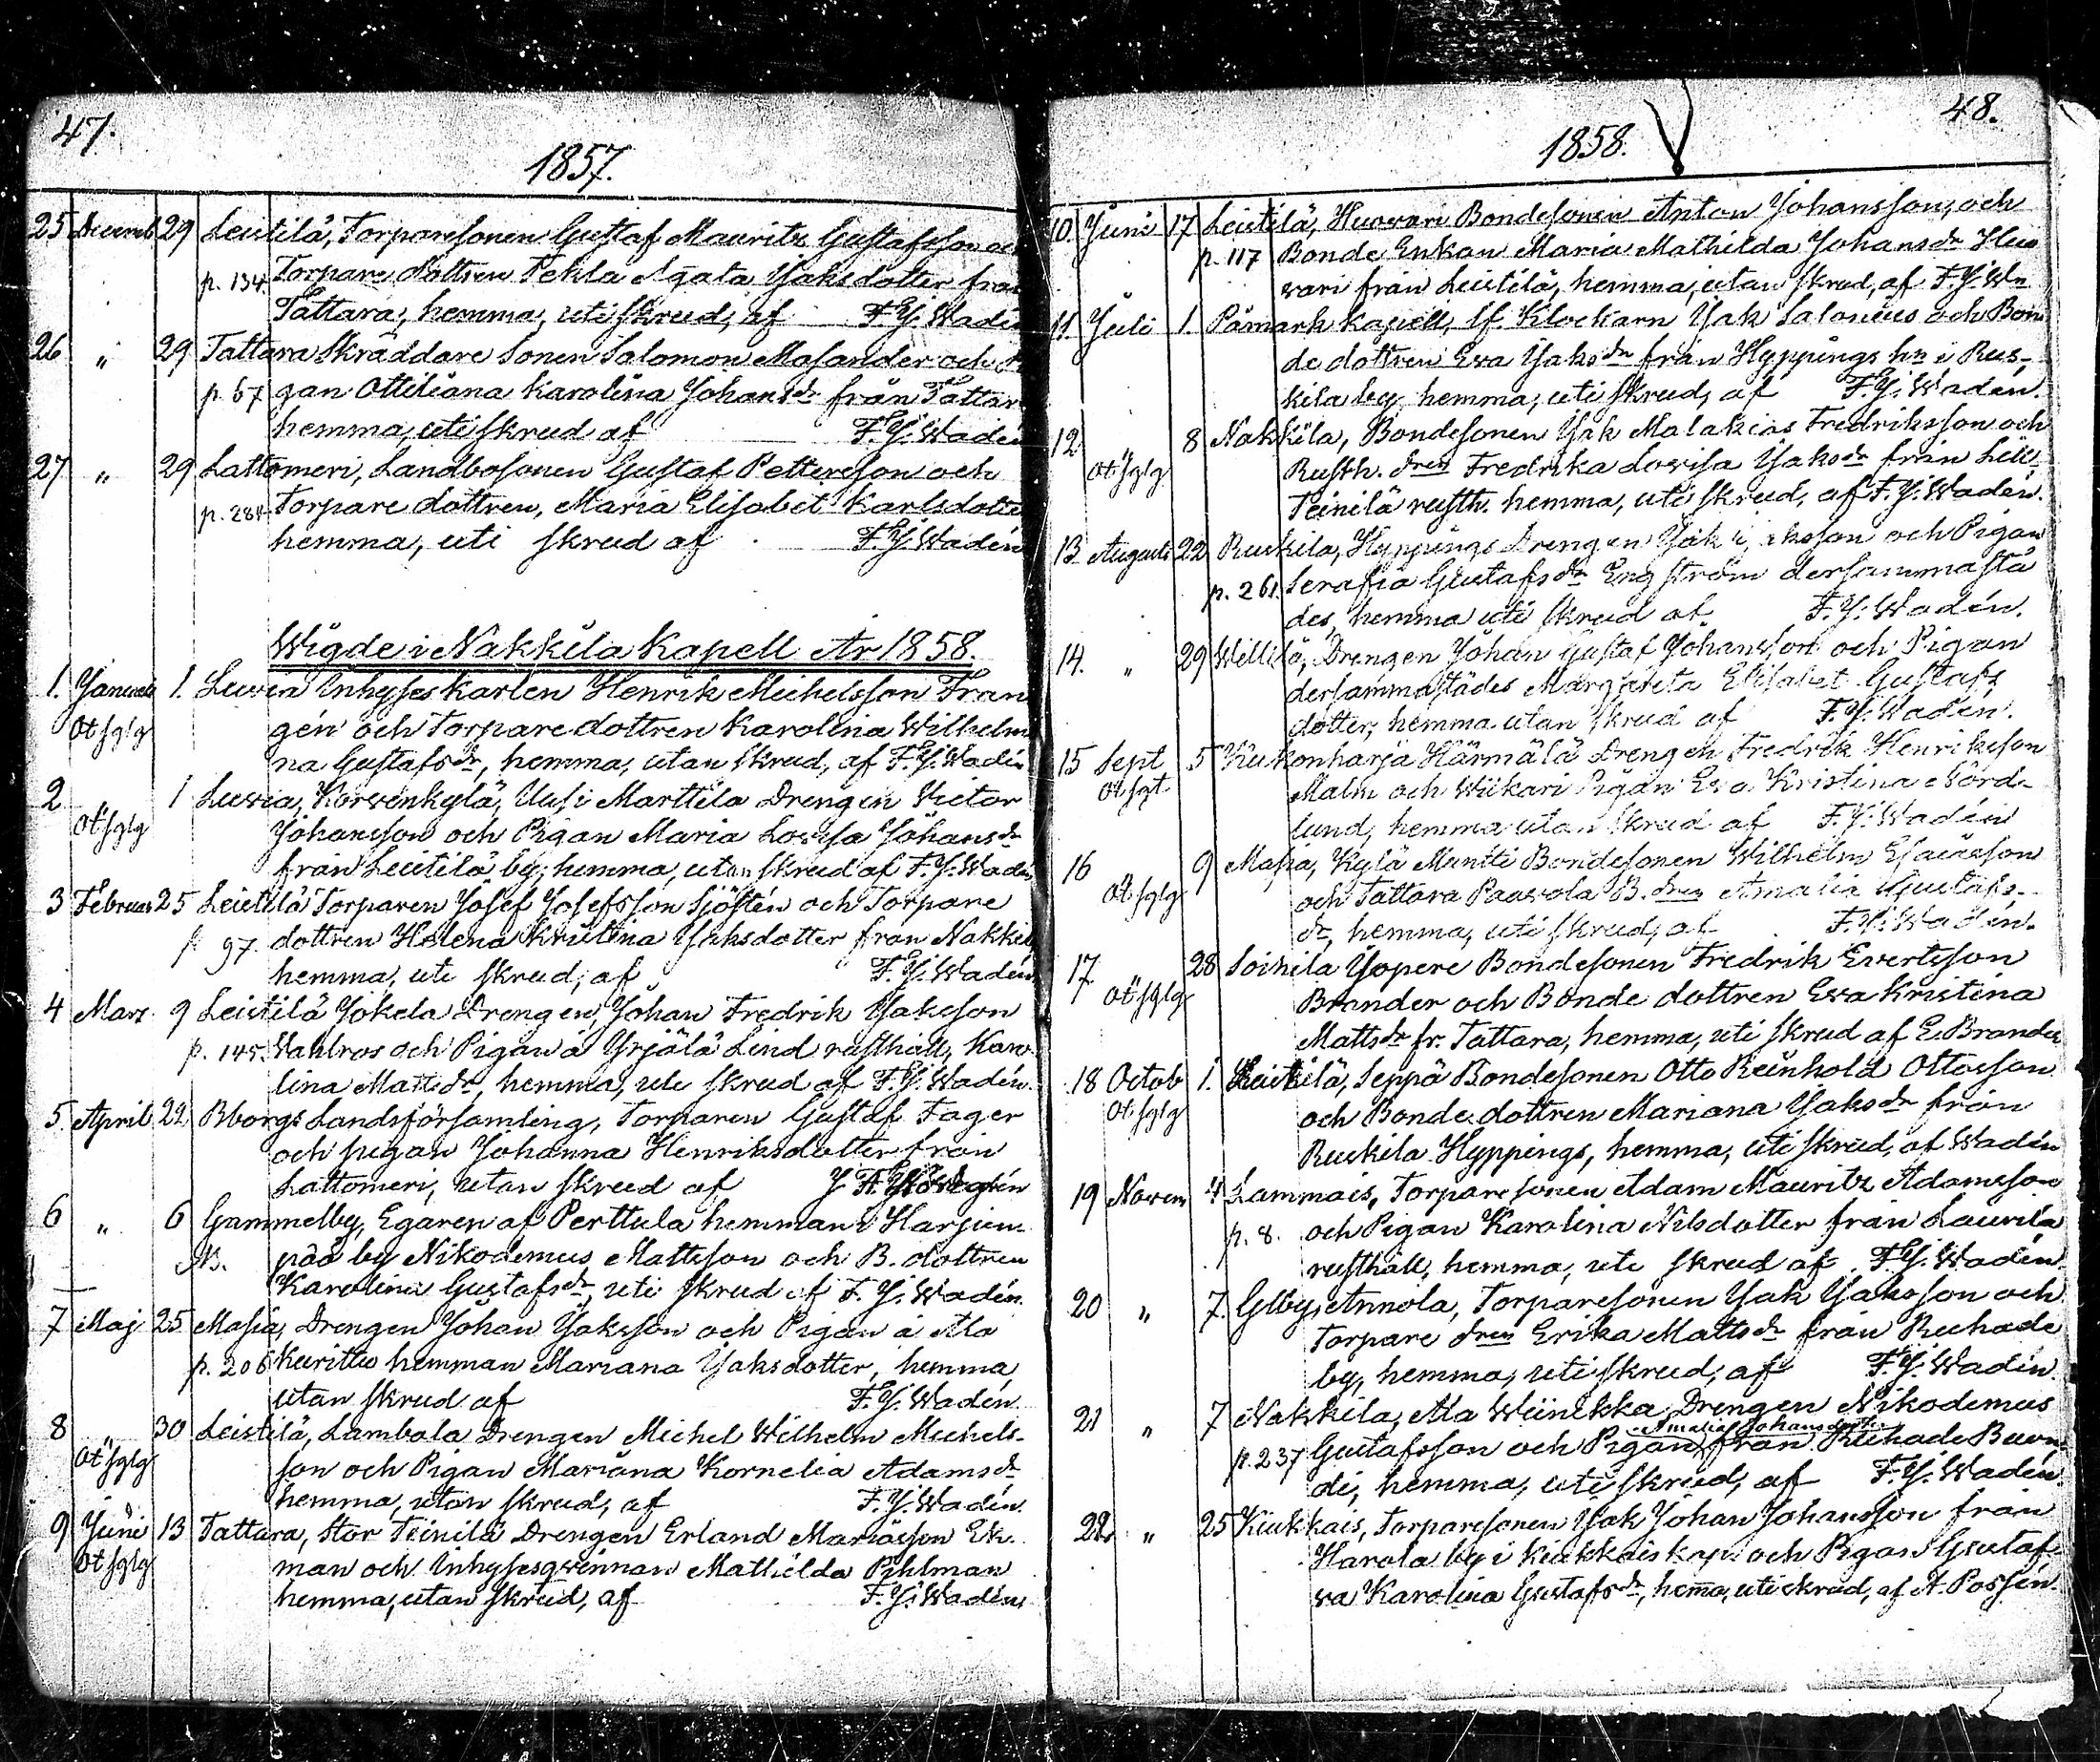 47.
1857.
25 Decemb 29 Leistilä, Torparesonen Gustaf Mauritz Gustafsson och
p. 134. Torpare dottren Tekla Agata Jaksdotter från
Tattara, hemma, uti skrud, af F.J. Wadén
26 " 29 Tattara Skräddare Sonen Salomon Masander och
p. 67 gan Ottiliana Karolina Johansdr från Tattar
hemma, uti skrud af F.J. Wadén
27 " 29 Lattomeri, Landbosonen Gustaf Pettersson och
p. 284. Torpare dottren, Maria Elisabet Karlsdotte
hemma, uti skrud af F.J. Wadén
Wigde i Nakkila Kapell År 1858.
1. Januari 1. Luvia Inhyses Karlen Henrik Michelsson Fran
Ot sglg gén och Torpare dottren Karolina Wilhelmi
na Gustafsdr, hemma, utan skrud, af F.J. Wadén
2 1 Luvia, Korvenkylä, Uusi Marttila Drengen Victor
Ot sglg Johansson och Pigan Maria Lovisa Johansdr
från Leistilä by, hemma, utan skrud af F.J. Wadén
3 Februar 25 Leistilä Torparen Josef Josefsson Sjöstén och Torpare
p 97. dottren Helena Kristina Jaksdotter från Nakkila
hemma, uti skrud, af F.J. Wadén
4 Mars 9 Leistilä Jokela Drengen, Johan Fredrik Jaksson
p. 145. Wahlros och Pigan å Yrjälä Lind rusthåll, Karo
lina Mattsdr, hemma, uti skrud af F.J. Wadén
5. April 22 Bborgs Landsförsamling, Torparen Gustaf Fager
och pigan Johanna Henriksdotter från
Lattomeri, utan skrud af
6 " 6 Gammelby, Egaren af Perttula hemman i Harjun-
NB. pää by Nikodemus Mattsson och B. dottren
Karolina Gustafsdr, uti skrud af F.J. Wadén.
7 Maj 25 Masia, Drengen Johan Jaksson och Pigan å Ala
p. 206 Kurittu hemman Mariana Jaksdotter, hemma,
utan skrud af F.J. Wadén
8 " 30 Leistilä, Lambola Drengen Michel Wilhelm Michels-
Ot sglg son och Pigan Mariana Kornelia Adamsdr
hemma, utan skrud, af F.J. Wadén.
9 Juni 13 Tattara, Stor Teinilä Drengen Erland Mariasson Ek-
Ot sglg man och Inhysesqvinnan Mathilda Pihlman
hemma, utan skrud, af F.J. Wadén,
48.
1858.
10. Juni 17 Leistilä, Huovari Bondesonen Anton Johansson, och
p. 117 Bonde Enkan Maria Mathilda Johansdr Huo
vari från Leistilä, hemma, utan skrud, af F.J. Wn
11. Juli 1. Påmark Kapell, Klockarn Jak Salonius och Bon
de dottren Eva Jaksdr från Hyppings hn i Rus-
kila by, hemma, uti skrud, af F.J. Wadén.
12. 8 Nakkila, Bondesonen Jak Malakias Fredriksson och
Ot sglg Rusth. dren Fredrika Lovisa Jaksdr från Lill-
Teinilä rusth. hemma, uti skrud, af F.J. Wadén.
13 Augusti 22 Ruskila, Hyppings Drengen Jak Jaksson och Pigan
p. 261. Serafia Gustafsdr Engström dersammastä
des, hemma uti skrud af F.J. Wadén.
14. " 29 Willilä, Drengen Johan Gustaf Johansson och Pigan
dersammastädes Margareta Elisabet Gustafs
dotter, hemma utan skrud af F.J. Wadén.
15 Sept 5 Kukonharja Härmälä Drengen Fredrik Henriksson
Ot sgt. Malm och Wiikari Pigan Eva Kristina Nord-
lund, hemma utan skrud af F.J. Wadén
16 9 Masia, Kylä Muntti Bondesonen Wilhelm Esaiasson
Ot. sglg och Tattara Paavola B. dren Amalia Gustafs-
dr, hemma, uti skrud, af F.J. Wadén.
17. 28 Soinila Jopere Bondesonen Fredrik Evertsson
Ot sglg Brander och Bonde dottren Eva Kristina
Mattsdr fr. Tattara, hemma, uti skrud af E. Brander
18 Octob 1. Leistilä, Seppä Bondesonen Otto Reinhold Ottosson
Ot. sglg och Bonde dottren Mariana Jaksdr från
Ruskila Hyppings, hemma, uti skrud, af Wadén
19 Novem 4 Lammais, Torparesonen Adam Mauritz Adamsson
p. 8. och Pigan Karolina Nilsdotter från Laurila
rusthåll, hemma, uti skrud af F.J. Wadén.
20 " 7. Glby, Annola, Torparesonen Jak Jaksson och
Torpare dren Erika Mattsdr från Ruhade
by, hemma, uti skrud, af F.J. Wadén
21 " 7 Nakkila, Ala Wiinikka Drengen Nikodemus
Amalia Johansdotter
p. 237 Gustafsson och Pigan från Ruhade
di, hemma, uti skrud, af F.J. Wadén.
22 " 25 Kiukkais, Torparesonen Jak Johan Johansson från
Harola by i Kiukkais kap. och Pigan Gustaf
va Karolina Gustafsdr, hemma, uti skrud, af A. Possén.